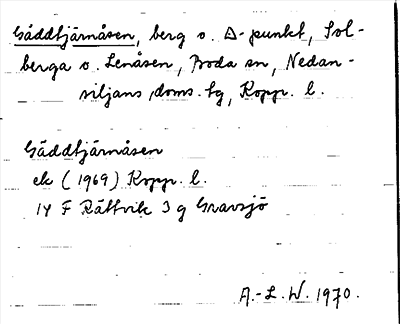 Gäddtjärnåsen, berg o. Δ-punkt, Sol-
berga o. Lenåsen, Boda sn, Nedan-
siljans doms. tg, Kopp. l.
Gäddtjärnåsen
ek (1969) Kopp. l.
14 F Rättvik 3 g Gravsjö
A.-L. W. 1970.